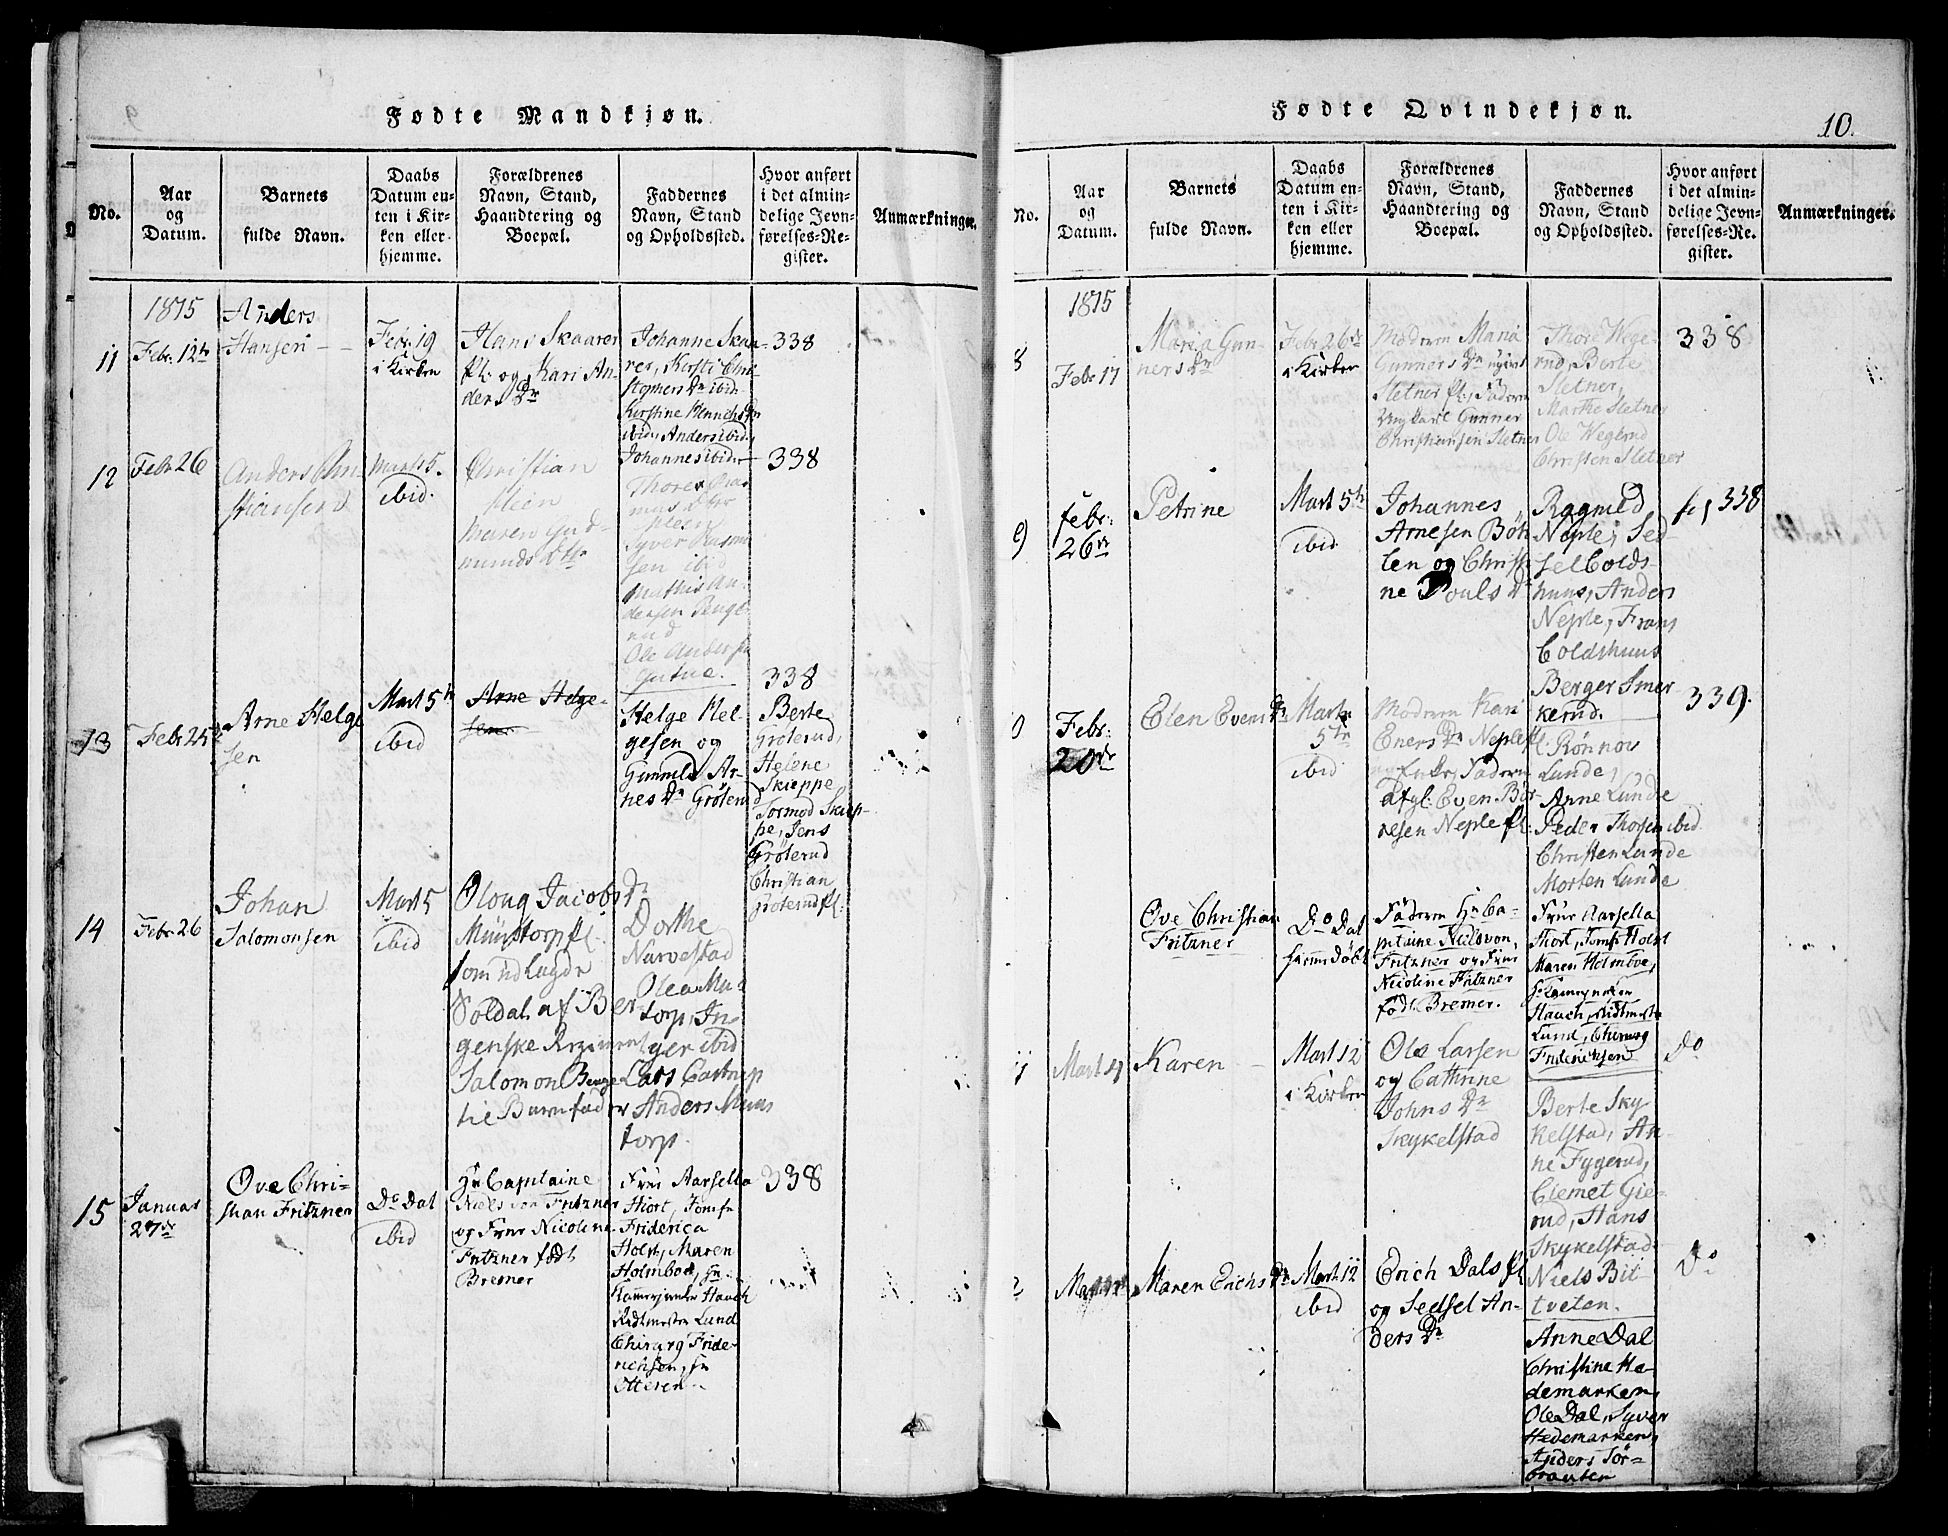 Fødte Mandkjøn.
No.
Aar
og
Datum.
Barnets
fulde Navn.
Daabs
Datum en-
ten i Kir-
ken eller
hjemme.
Forældrenes
Navn, Stand,
Haandtering og
Boepæl.
Faddernes
Navn, Stand
og Opholdssted.
Hvor anført
i det almin-
delige Jevn-
førelses-Re-
gister.
Anmærkninger.
1815
11
Febr: 12te
Anders
Hansen
Febr: 19
i Kirken
Hans Skaarer
pl: og Kari An-
ders Dr
Johanne Skaa-
rer, Kirsti Chri-
stophers Dr ibid
Kirstine Henrichs Dr
ibid, Anders ibid,
Johannes ibid
338
12
Febr 26
Anders Chri-
stiansen
Marts 5.
ibid.
Christian
Steen
Maren Gud-
munds Dtr
Thore
Steen
Syver Rasmu-
sen ibid
Mathis An-
dersen
rud
Ole Andersen
338
13
Febr 25de
Arne Helge
sen
Mart 5te
ibid
Arne Helge-
sen
Helge Hel-
gesen og
Gunnild Ar-
nes Dr Grøterud
338
Berte
Grøterud,
Helene
Skieppe
Tormod Skiep-
pe, Jens
Grøterud
Christian
Grøterud pl:
14
Febr 26
Johan
Salomonsen
Mart 5
ibid
Oloug Jacobs Dr
Munstorp pl.
som udlagde
Soldat af Ber-
genske Regiment
Salomon
til Barnefader
Dorthe
Narvestad
Olea Mu-
torp, In-
ger ibid
Lars Castnep
Anders Muns
torp.
15
Januar
27de
Ove Chri-
stian Fritzner
Do Dat
ibid
Hr Capitaine
Niels von Fritzner
og Frue Nicoline
Fritzner født
Bremer
Frue Aarsella
Hiort, Jomfr
Friderica
Holst, Maren
Holmboe, Hr
Kamerjunker Hauch
Ridtmester Lund
Chirurg Fride-
richsen, Hr
Ottesen
338
Fødte Qvindekjøn.
10.
No.
Aar
og
Datum.
Barnets
fulde Navn.
Daabs
Datum en-
ten i Kir-
ken eller
hjemme.
Forældrenes
Navn, Stand,
Haandtering og
Boepæl.
Faddernes
Navn, Stand
og Opholdssted.
Hvor anført
i det almin-
delige Jevn-
førelses-Re-
gister.
Anmærkninger.
1815
8
Febr 17
Maria Gun-
ners Dr
Febr 26de
i Kirken
Moderen Maria
Gunners Dr ugivt
Sletner pl, Faderen
Ungkarl Gunner
Christiansen Sletner
Thore Wege-
rud, Berte
Sletner,
Marthe Sletner
Ole Wegerud
Christen Sletner
338
9
febr:
26de
Petrine
Mart 5te
ibid
Johannes
Arnesen Bøh-
len og Christi-
ne Pouls Dr
Ragnild
Neple, Sed-
sel Colds-
huus, Anders
Neple, Frans
Coldshuus
Berger Smer
kerud.
338
0
Febr:
20de
Elen Evens Dr
Mart
5te
ibid
Moderen Kari
Eners Dr Neple pl:
Enke, Faderen
afgl: Even Bør-
resen Neple pl:
Rønnov
Lunde,
Anne Lunde
Peder Thorsen ibid
Christen Lunde
Morten Lunde
339.
Ove Christian
Fritzner
Do Dat
hiemmedøbt
Faderen Hr Ca-
pitaine Niels von
Fritzner og Frue
Nicoline Fritzner
født Bremer.
Frue Aarsella
Hiort, Jomfr Holst
Maren Holmboe,
Hr Kamerjunker
Hauch, Ridtmester
Lund, Chirurg
Friderichsen
Mart 4
Karen
Mart 12
i Kirken
Ole Larsen
og Cathrine
Johns Dr
Skykelstad
Berte Sky-
kelstad, An-
ne Fygerud,
Clemet Gie-
rud, Hans
Skykelstad
Niels Bit-
tveten.
Do
2
Maren Erichs Dr
Mart 12
ibid
Erich Dals pl
og Sedsel An-
ders Dr
Anne Dal
Christine He-
demarken,
Ole Dal, Syver
Hedemarken,
Anders Tør-
Do